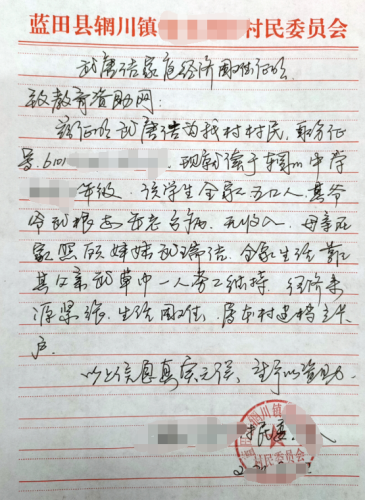 蓝田县辋川镇 村民委员会
武唐洁家庭经济困难证明
致教育资助网:
兹证明武唐洁为我村村民,身份证
号:610 现就读于辋川中学
年级,该学生全家五口人,其爷
爷武根志年老多病,无收入,母亲在
家照顾妹妹武瑞洁,全家生活靠
其父亲武革中一人务工维持,经济来
源紧张,生活困难,属本村建档立卡
户。
以上信息真实无误,望予以资助。
村民委
村民委员会